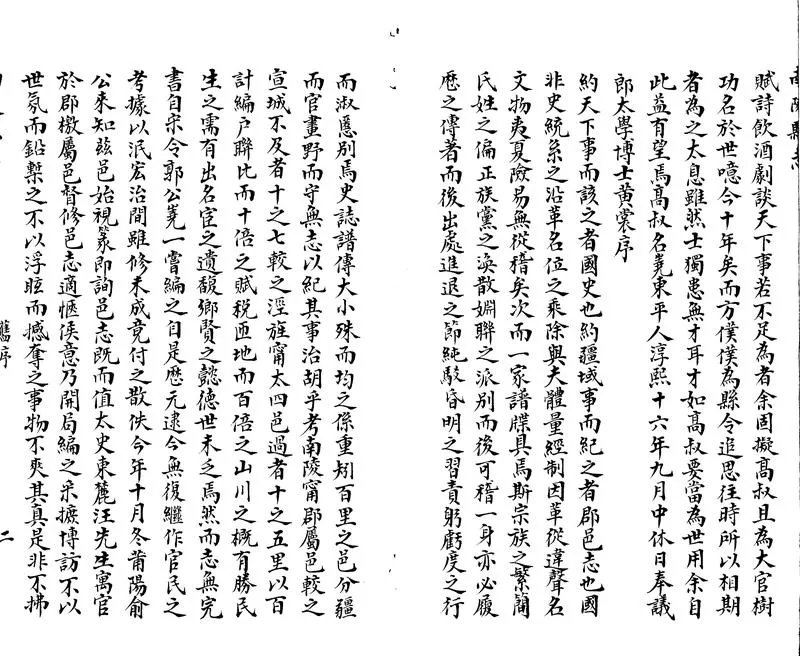 賦詩飲酒劇談天下事若不足為者余固擬髙叔且為大官樹
功名於世噫今十年矣而方僕僕為縣令追思往時所以相期
者為之太息雖然士獨患無才耳才如髙叔要當為世用余自
此益有望焉髙叔名嶤東平人淳熙十六年九月中休日奉議
郎太學博士黃裳序
約天下事而該之者國史也約疆域事而紀之者郡邑志也國
非史統系之沿革名位之乘除與夫體量經制因革從違聲名
文物夷夏險易無從稽矣次而一家譜牒具焉斯宗族之繁簡
氏姓之偏正族黨之渙散婣聯之派別而後可稽一身亦必履
歴之傳者而後出處進退之節純駁昏明之習責躬虧度之行
而淑慝別焉史誌譜傳大小殊而均之係重矧百里之邑分疆
而官畫野而守無志以紀其事治胡乎考南陵甯郡屬邑較之
宣城不及者十之七較之涇旌甯太四邑過者十之五里以百
計編户聯比而十倍之賦税匝地而百倍之山川之概有勝民
生之需有出名宦之遺馥鄉賢之懿德世未乏焉然而志無完
書自宋令郭公嶤一嘗編之自是歴元逮今無復繼作官民之
考據以泯宏治間雖修未成竟付之散佚今年十月冬莆陽俞
公來知玆邑始視篆即詢邑志既而值太史東麓汪先生寓官
於郡檄屬邑督修邑志適愜俟意乃開局編之采摭博訪不以
世氛而鉛槧之不以浮眩而撼奪之事物不爽其真是非不拂
舊序
二